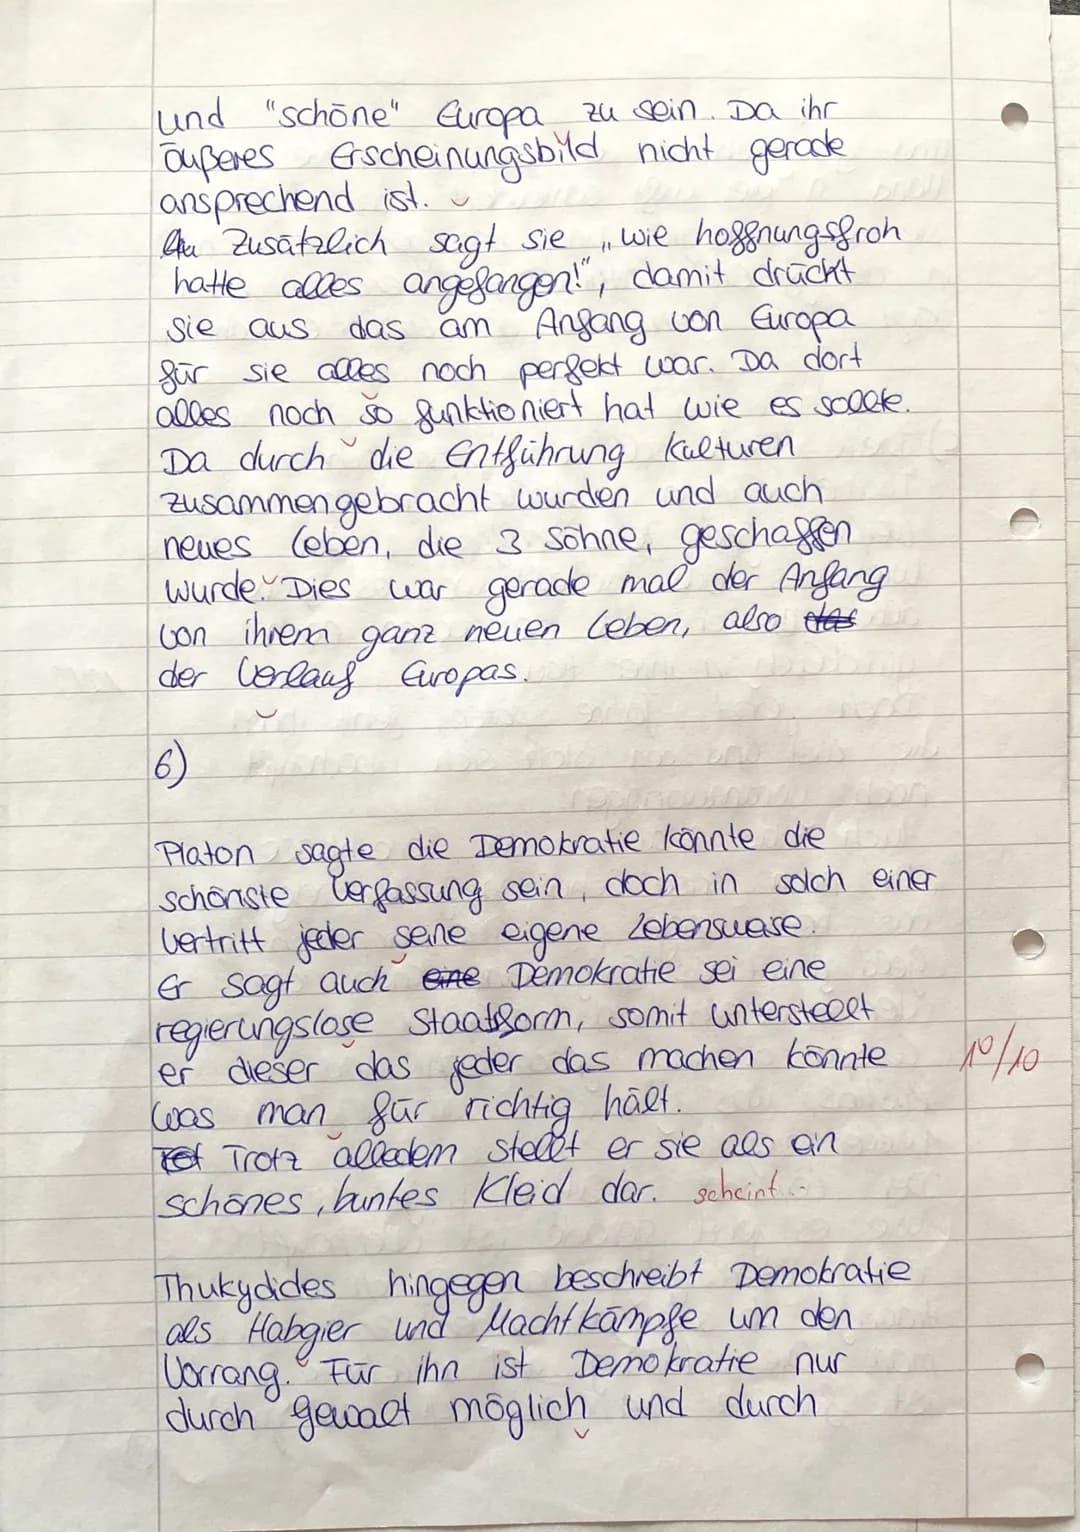 und "schöne" Europa zu sein. Da ihr
äußeres Erscheinungsbild nicht gerade
ansprechend ist.
Zusätzlich sagt sie „wie hoffnungsfroh
hatte alles angefangen!", damit drückt
sie aus das am Anfang von Europa
für sie alles noch perfekt war. Da dort
alles noch so funktioniert hat wie es sollte.
Da durch die Entführung Kulturen
zusammengebracht wurden und auch
neues Leben, die 3 Söhne, geschaffen
wurde. Dies war gerade mal der Anfang
von ihrem ganz neuen Leben, also das
der Verlauf Europas.
6)
Platon sagte die Demokratie könnte die
schönste Verfassung sein, doch in solch einer
vertritt jeder seine eigene Lebensweise.
Er sagt auch eine Demokratie sei eine
regierungslose Staatsform, somit unterstellt
er dieser das jeder das machen könnte
10/10
was man für richtig hält.
Trotz alledem stellt er sie als ein
schönes, buntes Kleid dar. scheint..
Thukydides hingegen beschreibt Demokratie
als Habgier und Machtkämpfe um den
Vorrang. Für ihn ist Demokratie nur
durch gewalt möglich und durch